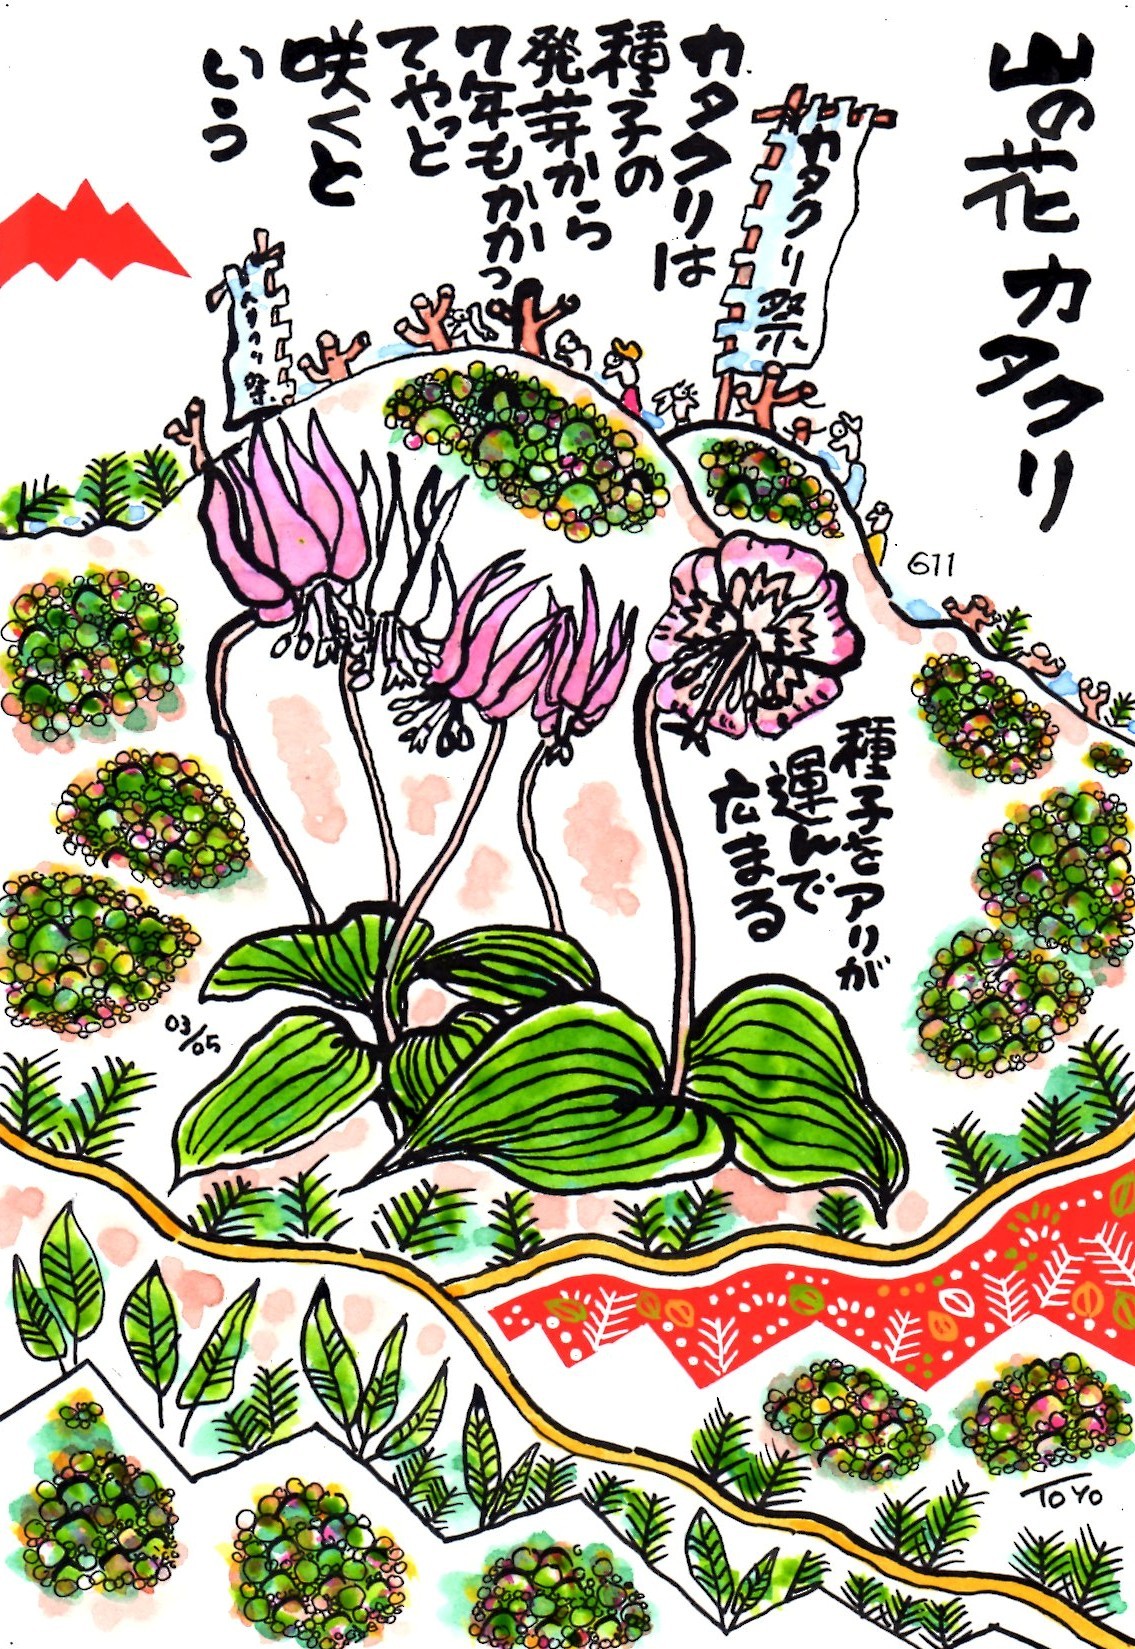 山の花カタクリ
カタクリは
種子の
発芽から
7年もかかっ
てやっと
咲くと
いう
カタクリ祭
カタクリ祭
611
種子をアリが
運んで
広まる
03/05
TOYO